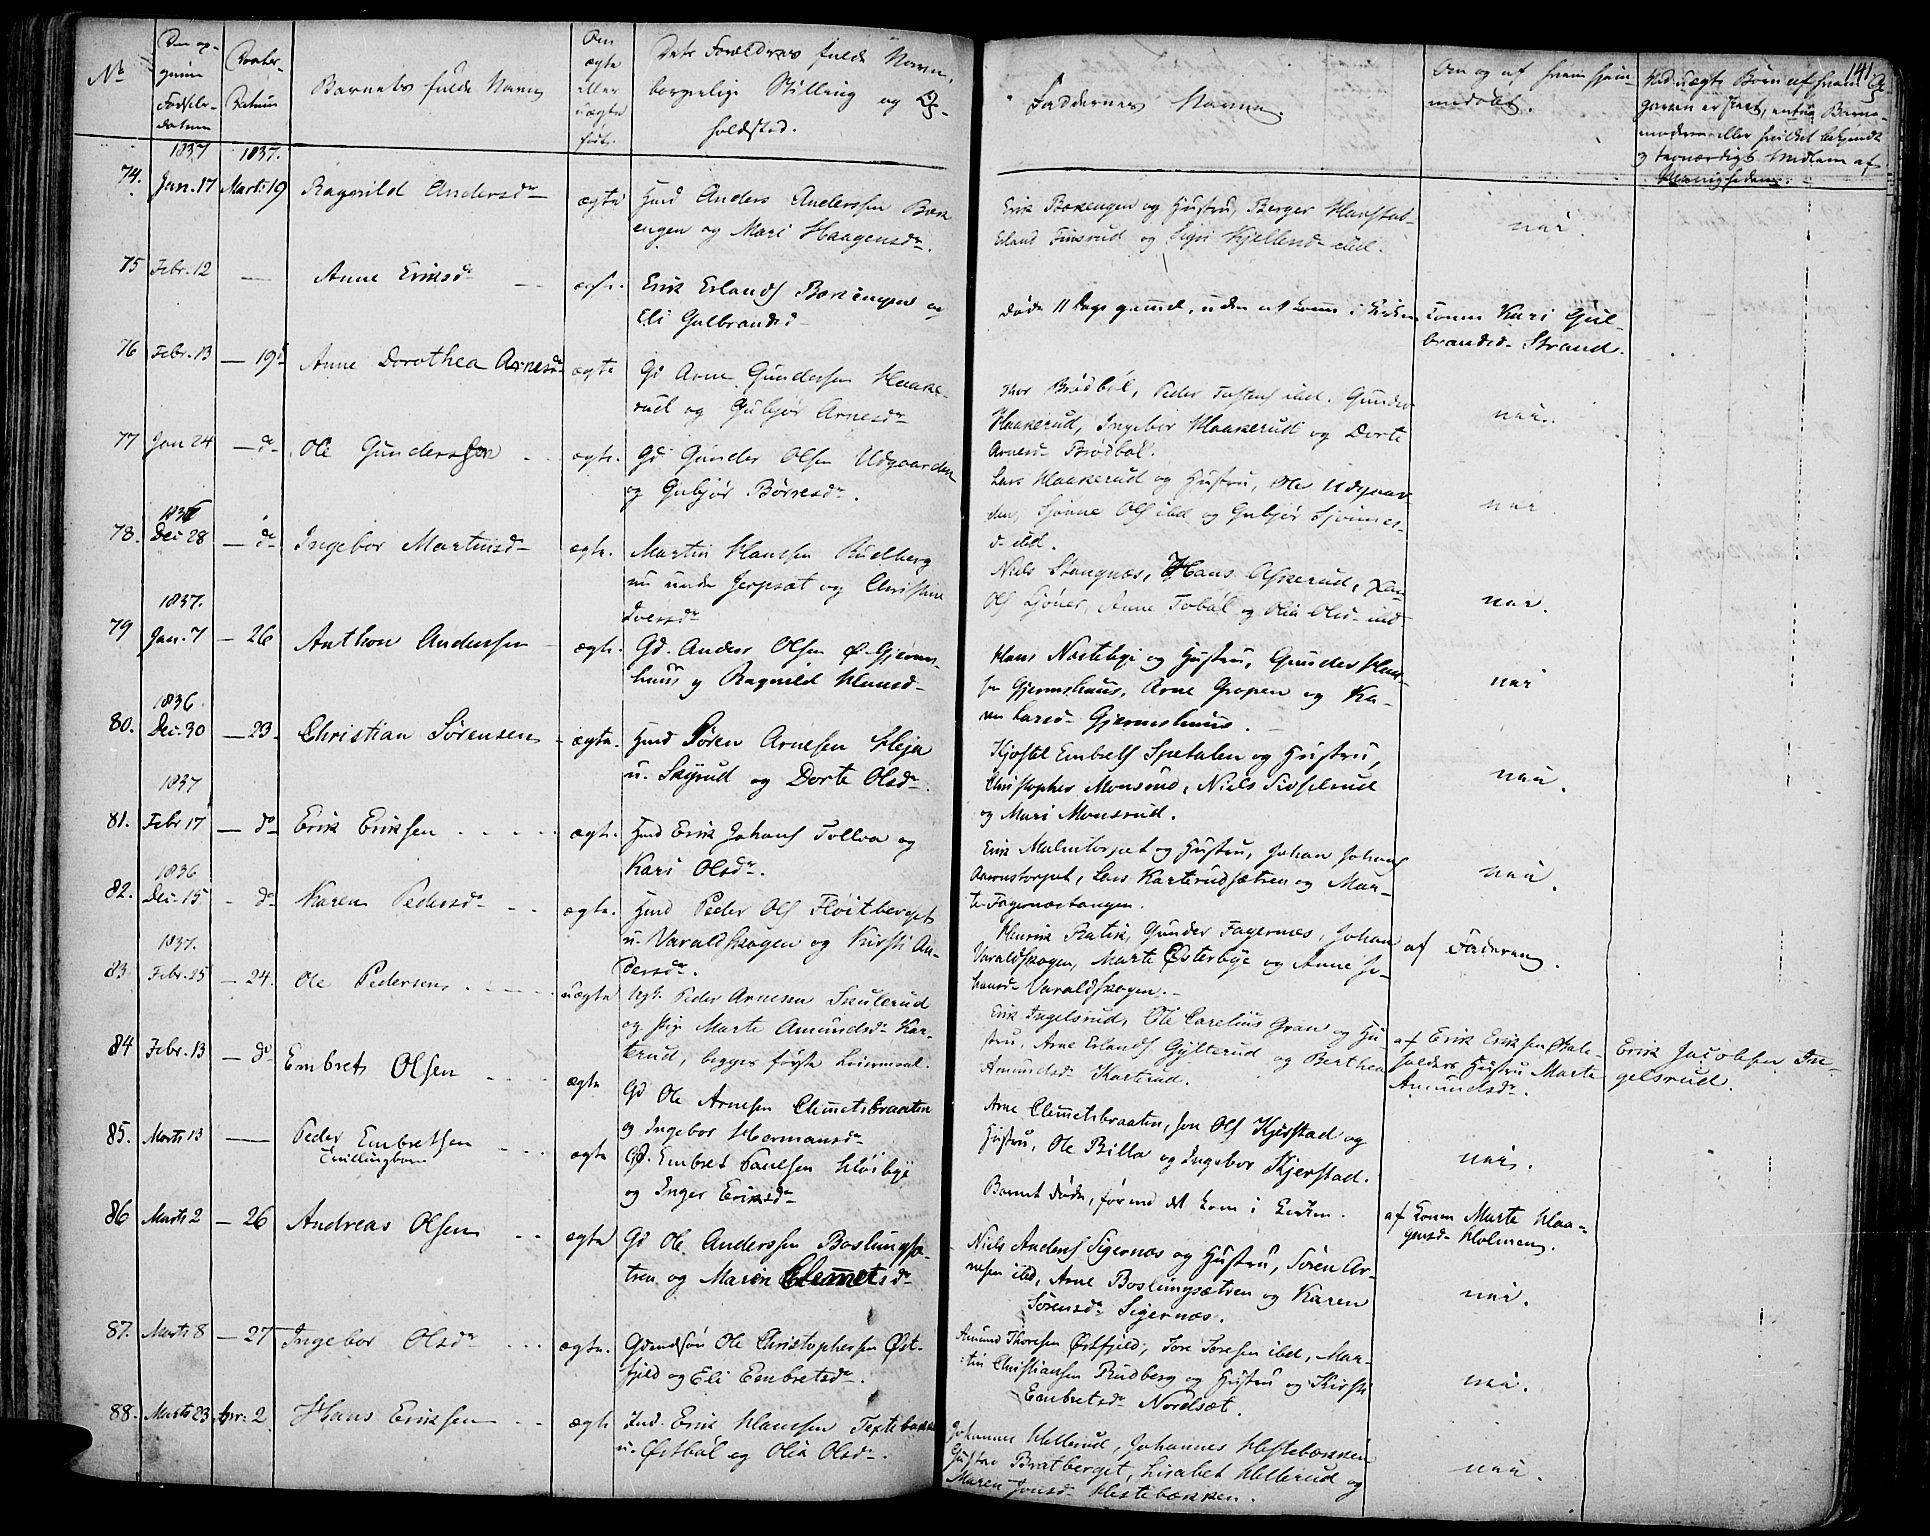 141
No
Den op-
givne
Fødsels-
datum
Daaber-
Datum
Barnets fulde Navn
Om
ægte
eller
uægte
født.
Dets Forældres fulde Navn,
borgerlige Stilling og Op-
holdsted.
Faddernes Navne.
Om og af hvem hjem-
medøbt.
1837 1837.
74. Jan. 17 Marts 19 Ragnild Andersdr ægte Huusmd Anders Andersen Bæk-
engen og Mari Haagensdr.
Erik Bækengen og Hustru, Berger Hanstad
Erland Finsrud og Sigri Kjellensdr ibd.
nei.
75 Febr. 12 — Anne Eriksdr ægte. Erik Erlands Bækengen og
Eli Gulbrandsd
døde 11 Dage gammel, uden at komme i Kirken
Konen Kari Gul-
brandsd. Strand.
76 Febr. 13 — 19 Anne Dorothea Arnesdr ægte Gd Arne Gundersen Haake-
rud og Gubjør Arnesdr
Thor Brødbøl, Peder Tostens ibd. Gunder
Haakerud, Ingebor Haakerud og Dorte
Arnesd. Brødbøl.
nei.
77 Jan 24 — do Ole Gundersen ægte. Gd Gunder Olsen Udgaarden
og Gubjør Børresdr.
Lars Haakerud og Hustru, Ole Udgaar-
den, Sjønne Ols ibd og Gubjør Sjønnes-
d. ibd.
nei
1836
78. Dec 28 — do Ingebor Martinsd ægte. Martin Hansen Rudberg
nu under Jerpset og Christine
Iversdr
Niels Stangnæs, Hans Askerud,
Ols Sjøner, Anne Tobøl og Olia Olsd. ibd
nei.
1837.
79 Jan. 7 — 26 Anthon Andersen ægte. Gd. Anders Olsen Ø. Gjerms-
huus og Ragnild Hansd
Hans Nordeby og Hustru, Gunder Han-
sen Gjermshuus, Arne Gropen og Ka-
ren Larsd. Gjermshuus.
nei
1836.
80. Dec. 30 — 23. Christian Sørensen ægte. Huusmd Søren Arnesen Heja
u. Skyrud og Dorte Olsdr.
Kjostel Embrets Spetalen og Hustru,
Christopher Monsrud, Niels Sidselrud
og Mari Monsrud.
nei.
1837
81. Febr 17 — do Erik Eriksen ægte. Huusmd Erik Johans Tolleva og
Kari Olsdr.
Erik Malmtorpet og Hustru, Johan Johans
Aarnstorpet, Lars Karterudsætren og Mar-
te Fagernæstangen.
nei.
1836
82. Dec. 15 — do Karen Pedersdr ægte. Huusmd Peder Ols Fløitberget
u. Varaldskogen og Kirsti An-
dersdr.
Henrik Ratik, Gunder Fagernæs, Johan
Varaldskogen, Marte Østerbye og Anne Jo-
hansd. Varaldskogen.
af Faderen.
1837.
83 Febr. 25 — 24. Ole Pedersen uægte Ugk. Peder Arnesen Skulerud
og Pige Marte Amundsdr Kar-
terud, begges første Leiermaal.
Erik Ingelsrud, Ole Carelius Gran og Hu-
stru, Arne Erlands Gylterud og Berthea
Amundsd. Karterud.
af Erik Eriksen
Hustru Marte
Amundsdr.
Erik Jacobsen In-
gelsrud.
84 Febr. 13 — do Embret Olsen ægte Gd Ole Arnesen Clemetsbraaten
og Ingebor Hermansdr
Arne Clemetsbraaten, Jon Ols Kjerstad og
Hustru, Ole Billa og Ingebor Kjerstad.
nei.
85. Marts 13 — Peder Embretsen
Tvillingbarn
ægte Gd. Embret Paulsen Høibye
og Inger Eriksdr
Barnet døde, førend det kom i Kirken.
af Konen Marte Haa-
gensd. Holmen.
86 Marts 2 — 26 Andreas Olsen ægte Gd Ole Anderssen Boslungsæ-
tren og Maren Clemetsdr
Niels Anders Sigernæs og Hustru, Søren Ar-
nesen ibd, Arne Boslungsætren og Karen
Sørensdr Sigernæs.
nei.
87. Marts 8 — 27 Ingebor Olsdr ægte. Gdmdsøn Ole Christophersen Øst-
fjeld og Eli Embretsdr.
Amund Thoresen Østfjeld, Tore Toresen ibd, Mar-
tin Christiansen Rudberg og Hustru og Kirsti
Embretsdr Nordsæt.
nei.
88. Marts 23 Apr. 2 Hans Eriksen ægte Ind. Erik Hanssen
u. Østbøl og Olia Olsdr.
Johannes Hellerud, Johannes Hestebækken
Gustav Bratberget, Lisabet Hellerud og
Maren Jonsdr Hestebækken.
nei.